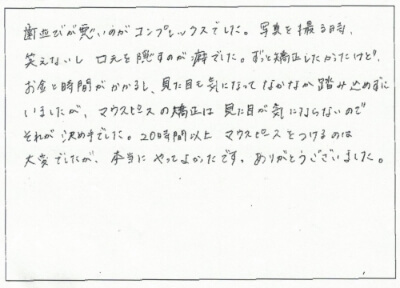 歯並びが悪いのがコンプレックスでした。写真を撮る時、
笑えないし口元を隠すのが癖でした。ずっと矯正したかったけど、
お金と時間がかかるし、見た目も気になってなかなか踏み込めずに
いましたが、マウスピースの矯正は見た目が気にならないので
それが決め手でした。20時間以上マウスピースをつけるのは
大変でしたが、本当にやってよかったです。ありがとうございました。